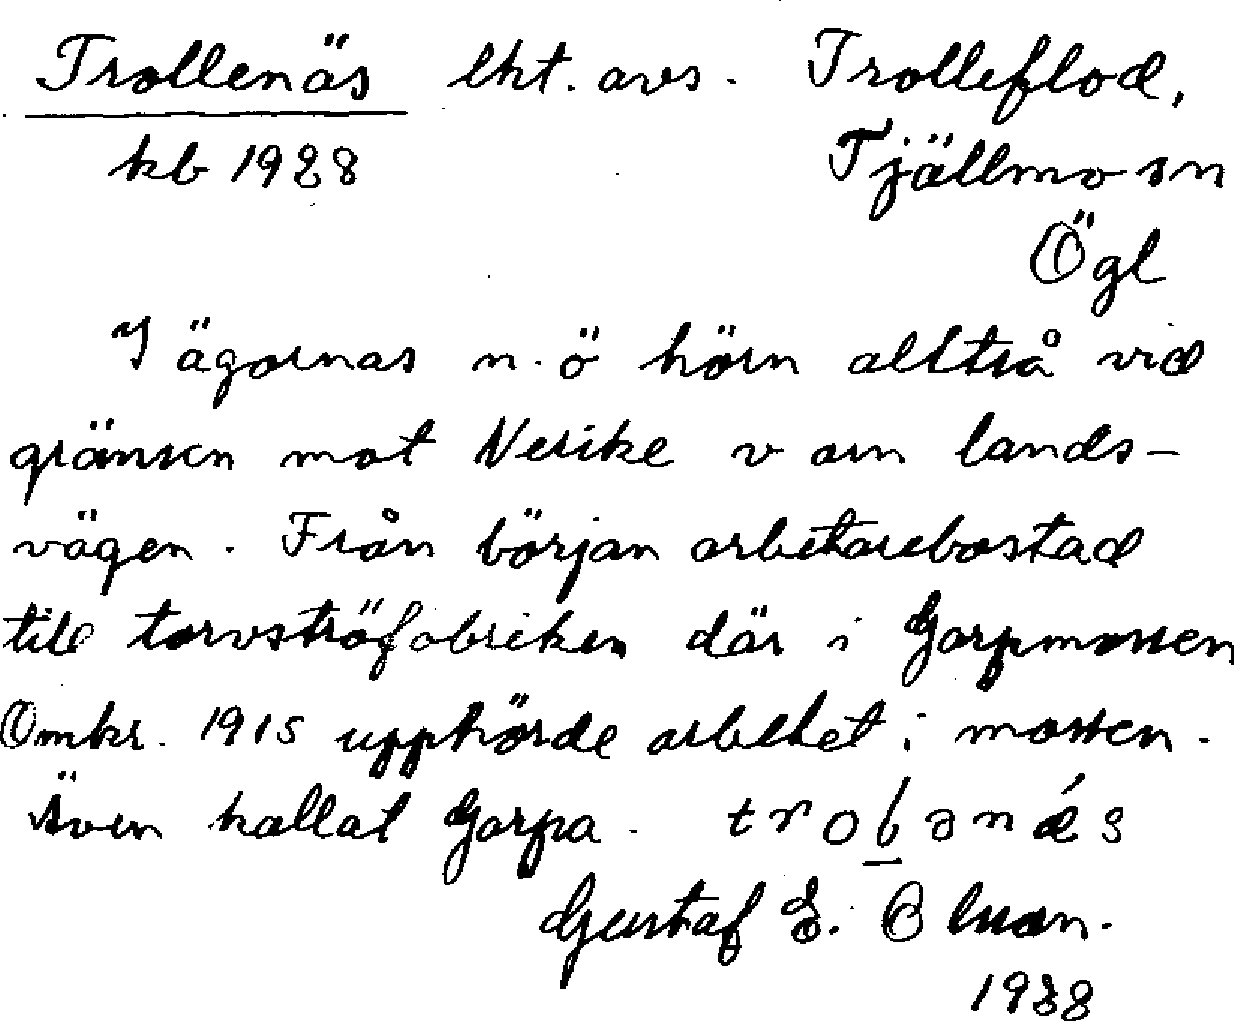 Trollenäs lht. avs. Trolleflod,
kb 1928 Tjällmo sn
Ögl
I ägornas n.ö hörn alltså vid
gränsen mot Nerike v om lands-
vägen. Från början arbetarebostad
till torvströfabriken där i Gorpmossen
Omkr. 1915 upphörde arbetet i mossen.
Även kallat Gorpa. troḻanǽs
Gustaf E. Olsson.
1938